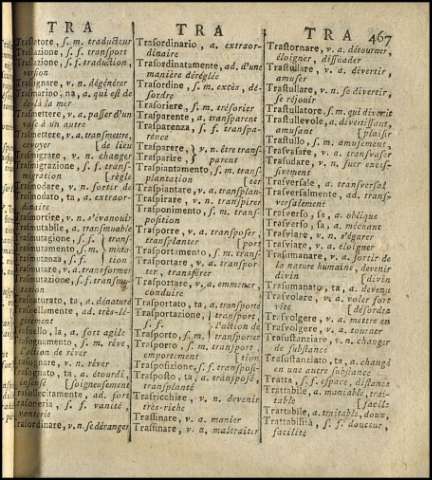 TRA
TRA
TRA 467
s. m. traducteur
s. f. transport
s. f. traduction,
version
v. n. dégénérer
na, a. qui est de
de-là la mer
v. a. passer d'un
à un autre
v. a. transmettre,
envoyer [de lieu
v. n. changer
s. f. transmigration
[réglé
v. n. sortir de
ta, a. extraordinaire
v. n. s'évanouir
a. transmuable
s. f.
s. m.
s. f.
v. a. transformer
s. f. transmutation
ta, a. dénaturé
ad. très-légérement
la, a. fort agile
s. m. rêve,
l'action de rêver
v. n. rêver
ta, a. étourdi,
insensé [soigneusement
ad. fort
s. f. vanité,
vanterie
v. n. se déranger
Trasordinario, a. extraordinaire
Trasordinatamente, ad. d'une
manière déréglée
Trasordine, s. m. excès, désordre
Trasoriere, s. m. trésorier
Trasparente, a. transparent
Trasparenza, s. f. transparence
Trasparere, } v. n. être transparent
Trasparire,
Traspiantamento, s. m. transplantation
[ter
Traspiantare, v. a. transplan-
Traspirare, v. n. transpirer
Trasponimento, s. m. transposition
Trasporre, v. a. transposer,
transplanter [port
Trasportamento, s. m. trans-
Trasportare, v. a. transporter,
transférer
Trasportare, v. a. emmener,
conduire
Trasportato, ta, a. transporté
Trasportazione, s. f. l'action de
Trasporto, s. m. transporter
Trasporto, s. m. transport,
emportement [tion
Trasposizione, s. f. transposi-
Trasposto, ta, a. transposé,
transplanté
Trasricchire, v. n. devenir
très-riche
Trassinare, v. a. manier
Trassinare, v. a. maltraiter
Trastornare, v. a. détourner,
éloigner, dissuader
Trastullare, v. a. divertir,
amuser
Trastullare, v. n. se divertir,
se réjouir
Trastullatore, s. m. qui divertit
Trastullevole, a. divertissant,
amusant [plaisir
Trastullo, s. m. amusement,
Trasvasare, v. a. transvaser
Trasudare, v. n. suer excessivement
Trasversale, a. transversal
Trasversalmente, ad. transversalement
Trasverso, sa, a. oblique
Trasverso, sa, a. méchant
Trasviare, v. n. s'égarer
Trasviare, v. a. éloigner
Trasumanare, v. a. sortir de
la nature humaine, devenir
divin [divin
Trasumanato, ta, a. devenu
Trasvolare, v. a. voler fort
vîte [désordre
Trasvolgere, v. a. mettre en
Trasvolgere, v. a. tourner
Trasustanziare, v. n. changer
de substance
Trasustanziato, ta, a. changé
en une autre substance
Tratta, s. f. espace, distance
Trattabile, a. maniable, traitable
[facile
Trattabile, a. traitable, doux,
Trattabilità, s. f. douceur,
facilité